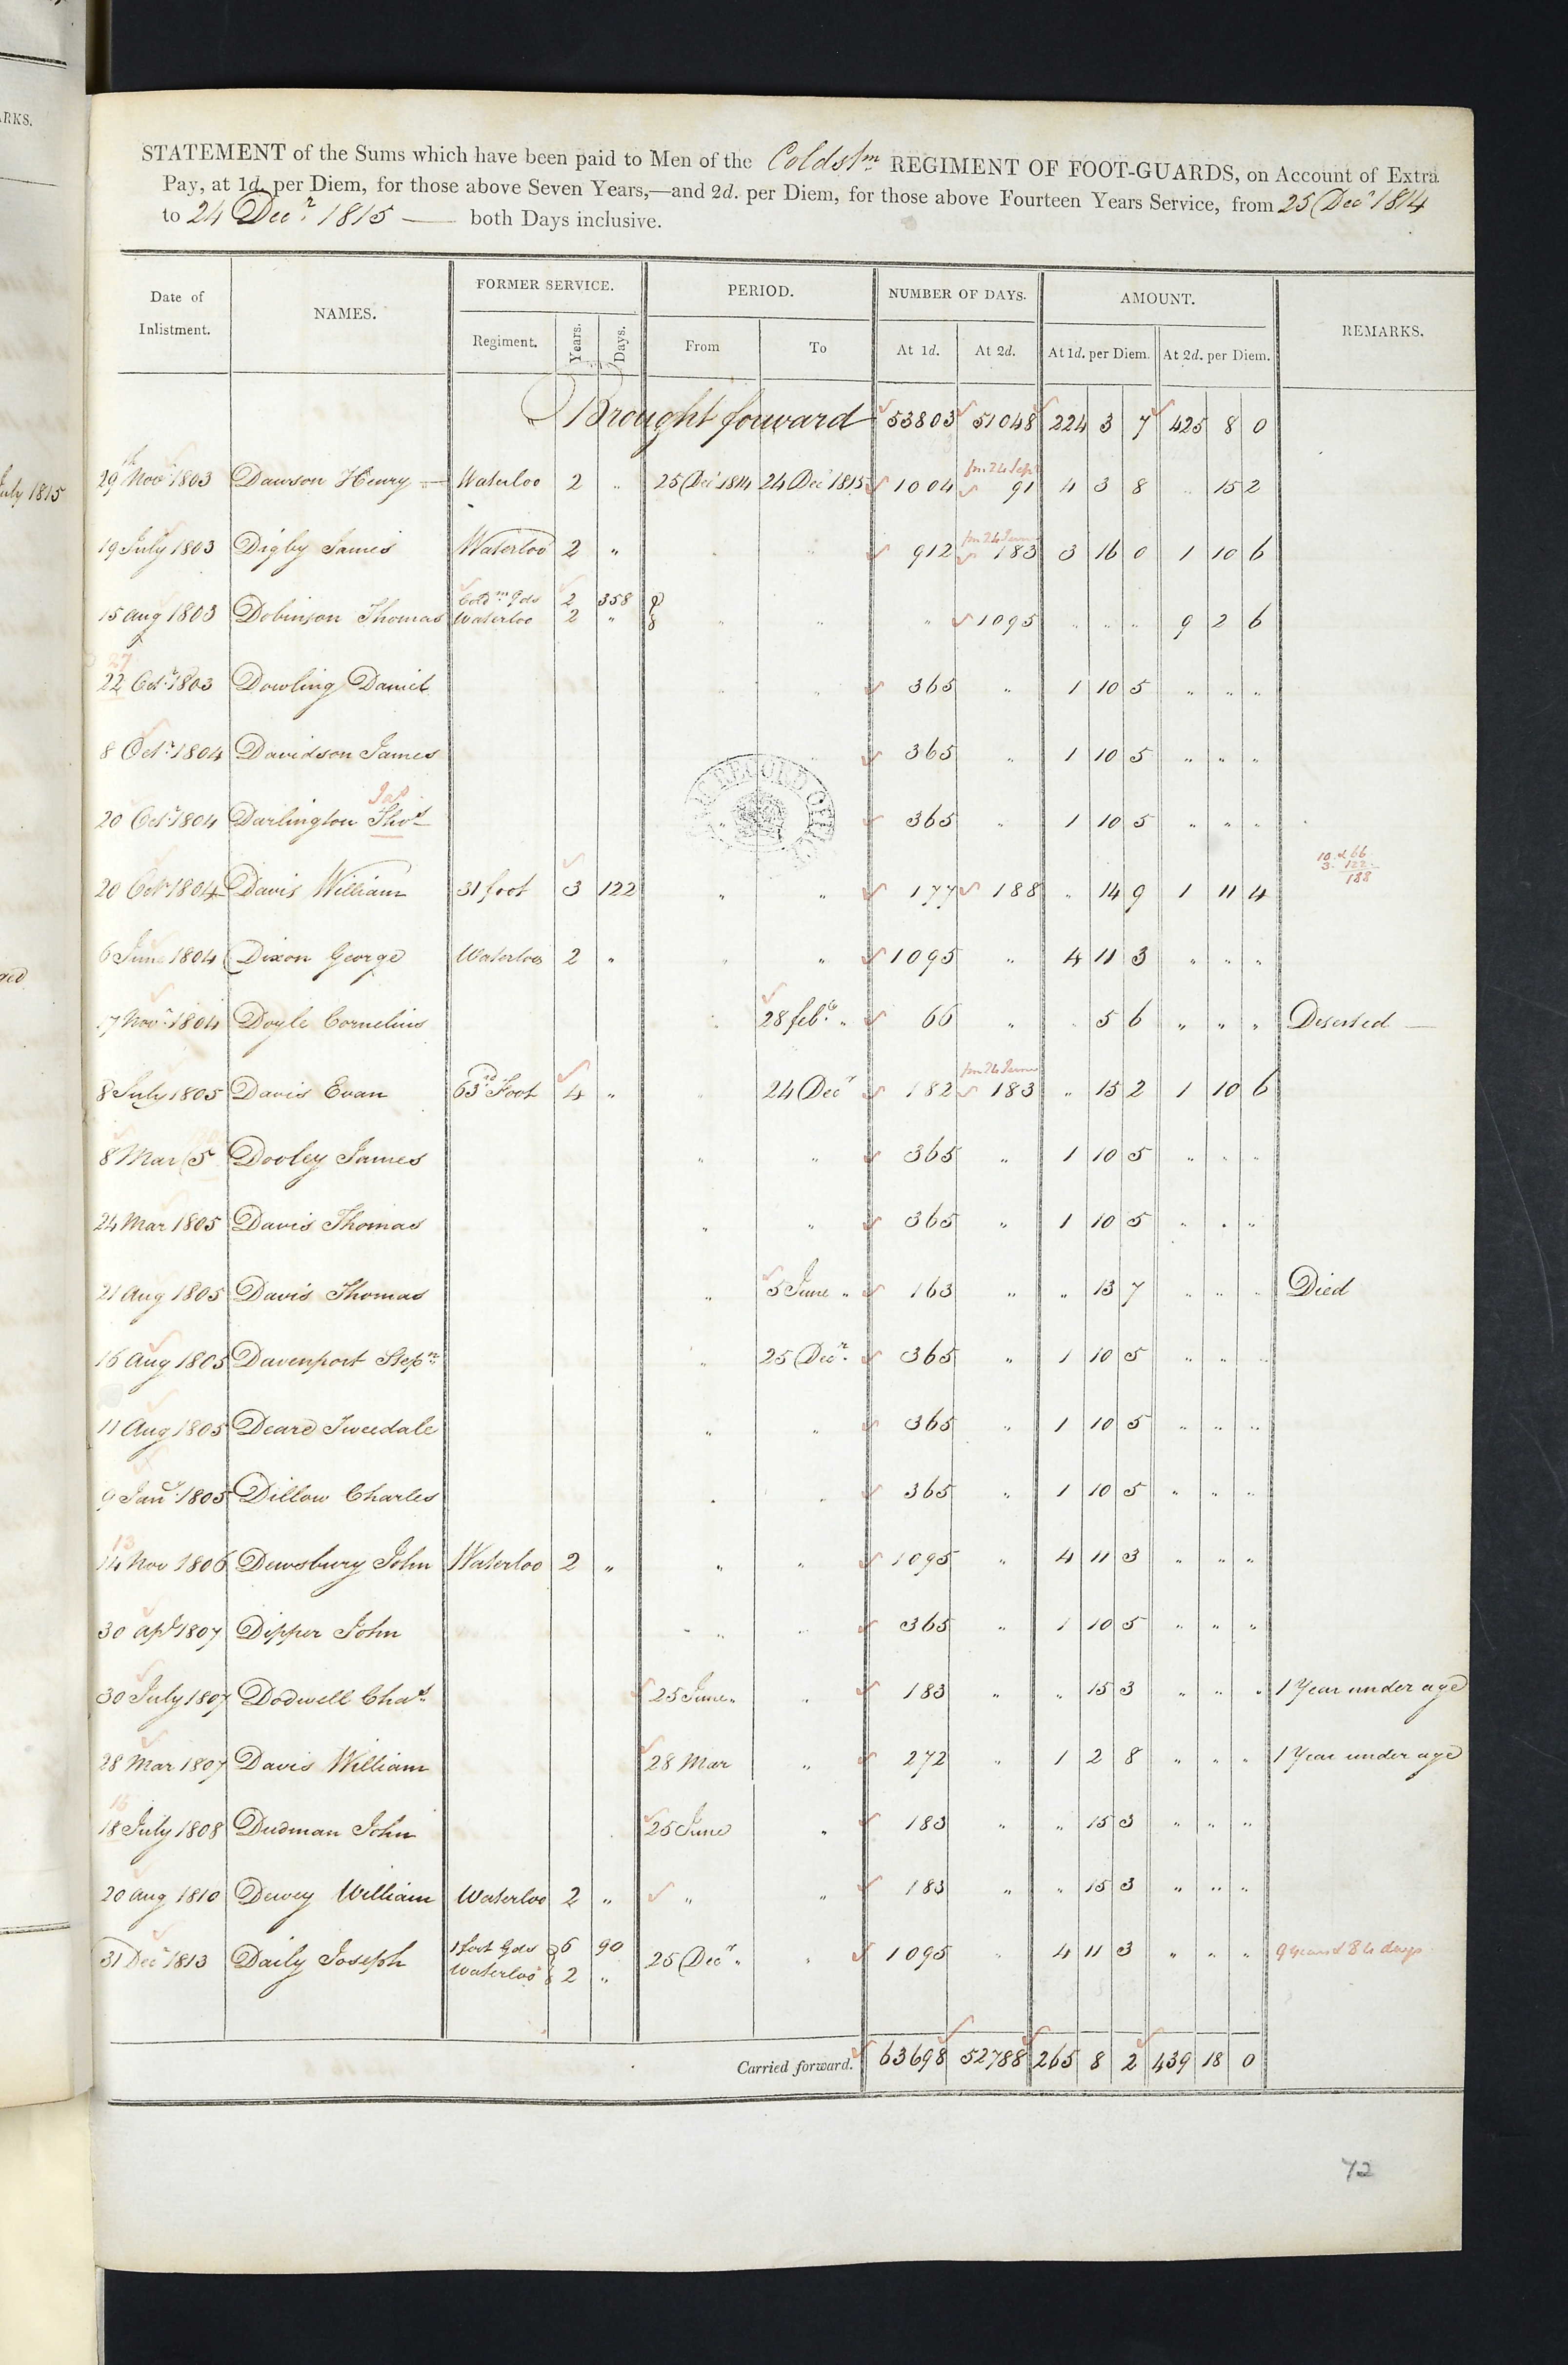 STATEMENT of the Sums which have been paid to Men of the Coldstm REGIMENT OF FOOT-GUARDS, on Account of Extra
Pay, at 1d. per Diem, for those above Seven Years,—and 2d. per Diem, for those above Fourteen Years Service, from 25 Decr 1814
to 24 Decr 1815 — both Days inclusive.
Date of Inlistment. NAMES. FORMER SERVICE. PERIOD. NUMBER OF DAYS. AMOUNT. REMARKS.
Regiment. Years. Days. From To At 1d. At 2d. At 1d. per Diem. At 2d. per Diem.
Brought forward 53803 51048 224 3 7 425 8 0
fm 24 Sepr
29th Novr 1803 Dawson Henry Waterloo 2 " 25 Decr 1814 24 Decr 1815 1004 91 4 3 8 " 15 2
fm 24 June
19 July 1803 Digby James Waterloo 2 " " " 912 183 3 16 0 1 10 6
Coldm Gds 2 358
15 Aug 1803 Dobinson Thomas Waterloo 2 " " " " 1095 " " " 9 2 6
27
22 Octr 1803 Dowling Daniel " " 365 " 1 10 5 " " "
8 Octr 1804 Davidson James " 365 " 1 10 5 " " "
Jas
20 Octr 1804 Darlington Thos " " 365 " 1 10 5 " " "
10 . 66
3 . 122
188
20 Octr 1804 Davis William 31 foot 3 122 " " 177 188 " 14 9 1 11 4
6 June 1804 Dixon George Waterloo 2 " " " 1095 " 4 11 3 " " "
17 Novr 1804 Doyle Cornelius " 28 feby " 66 " " 5 6 " " " Deserted —
fm 24 June
8 July 1805 Davis Evan 63rd Foot 4 " " 24 Decr 182 183 " 15 2 1 10 6
8 Mar 5 Dooley James " " 365 " 1 10 5 " " "
24 Mar 1805 Davis Thomas " " 365 " 1 10 5 " " "
21 Aug 1805 Davis Thomas " 5 June " 163 " " 13 7 " " " Died
16 Aug 1805 Davenport Stepn " 25 Decr 365 " 1 10 5 " " "
11 Aug 1805 Deare Tweedale " " 365 " 1 10 5 " " "
9 Jany 1805 Dillow Charles " " 365 " 1 10 5 " " "
13
14 Nov 1806 Dewsbury John Waterloo 2 " " " 1095 " 4 11 3 " " "
30 Apl 1807 Dipper John " " 365 " 1 10 5 " " "
30 July 1807 Dodwell Chas 25 June " " 183 " " 15 3 " " " 1 Year under age
28 Mar 1807 Davis William 28 Mar " 272 " 1 2 8 " " " 1 Year under age
18 July 1808 Dudman John 25 June " 183 " " 15 3 " " "
20 Aug 1810 Dewey William Waterloo 2 " " " 183 " " 15 3 " " "
1 foot Gds 6 90
31 Decr 1813 Daily Joseph 25 Decr " " 1095 " 4 11 3 " " " 9 Years & 84 days
Waterloo 2 "
Carried forward. 63698 52788 265 8 2 439 18 0
72
RECORD
ARKS.
July 1815